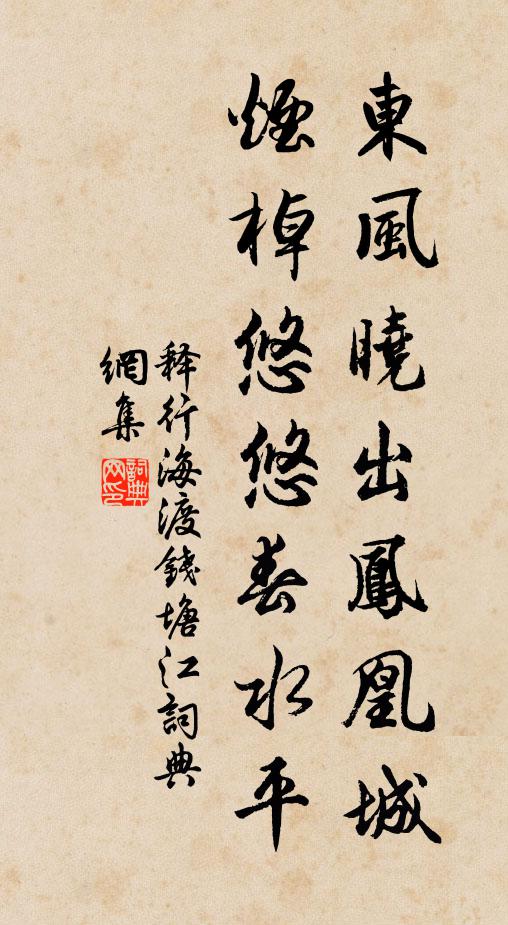 東風曉出鳳凰城
煙棹悠悠春水平
释行海渡錢塘江詞典
網集
詞典
网印